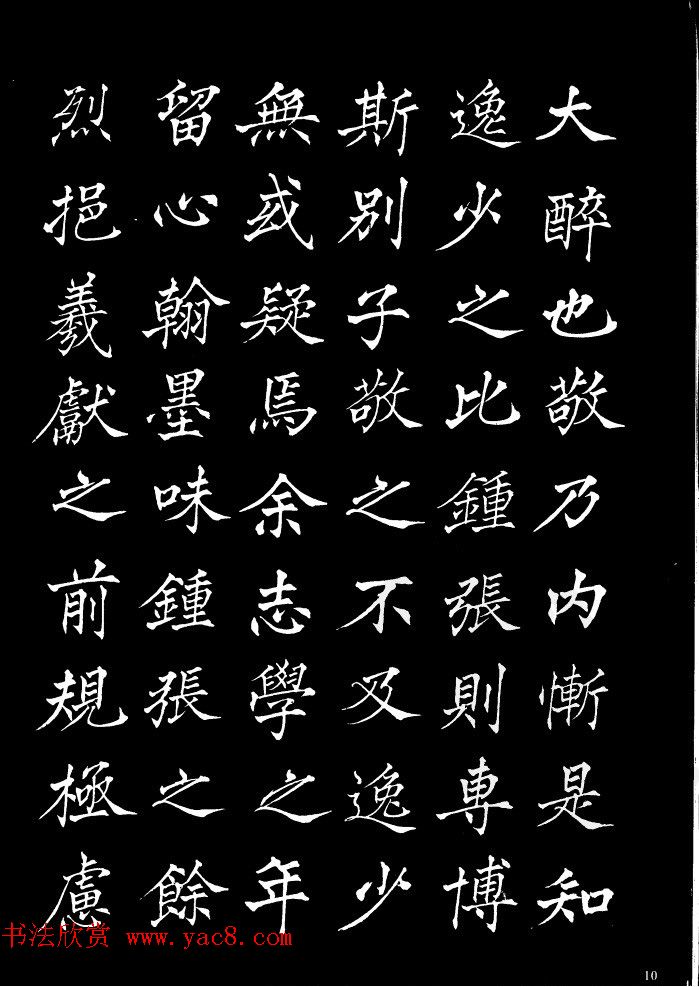 大醉也敬乃内慚是知
逸少之比鍾張則専博
斯別子敬之不及逸少
無或疑焉余志學之年
留心翰墨味鍾張之餘
烈挹羲獻之前規極慮
书法欣赏 www.yac8.com
10